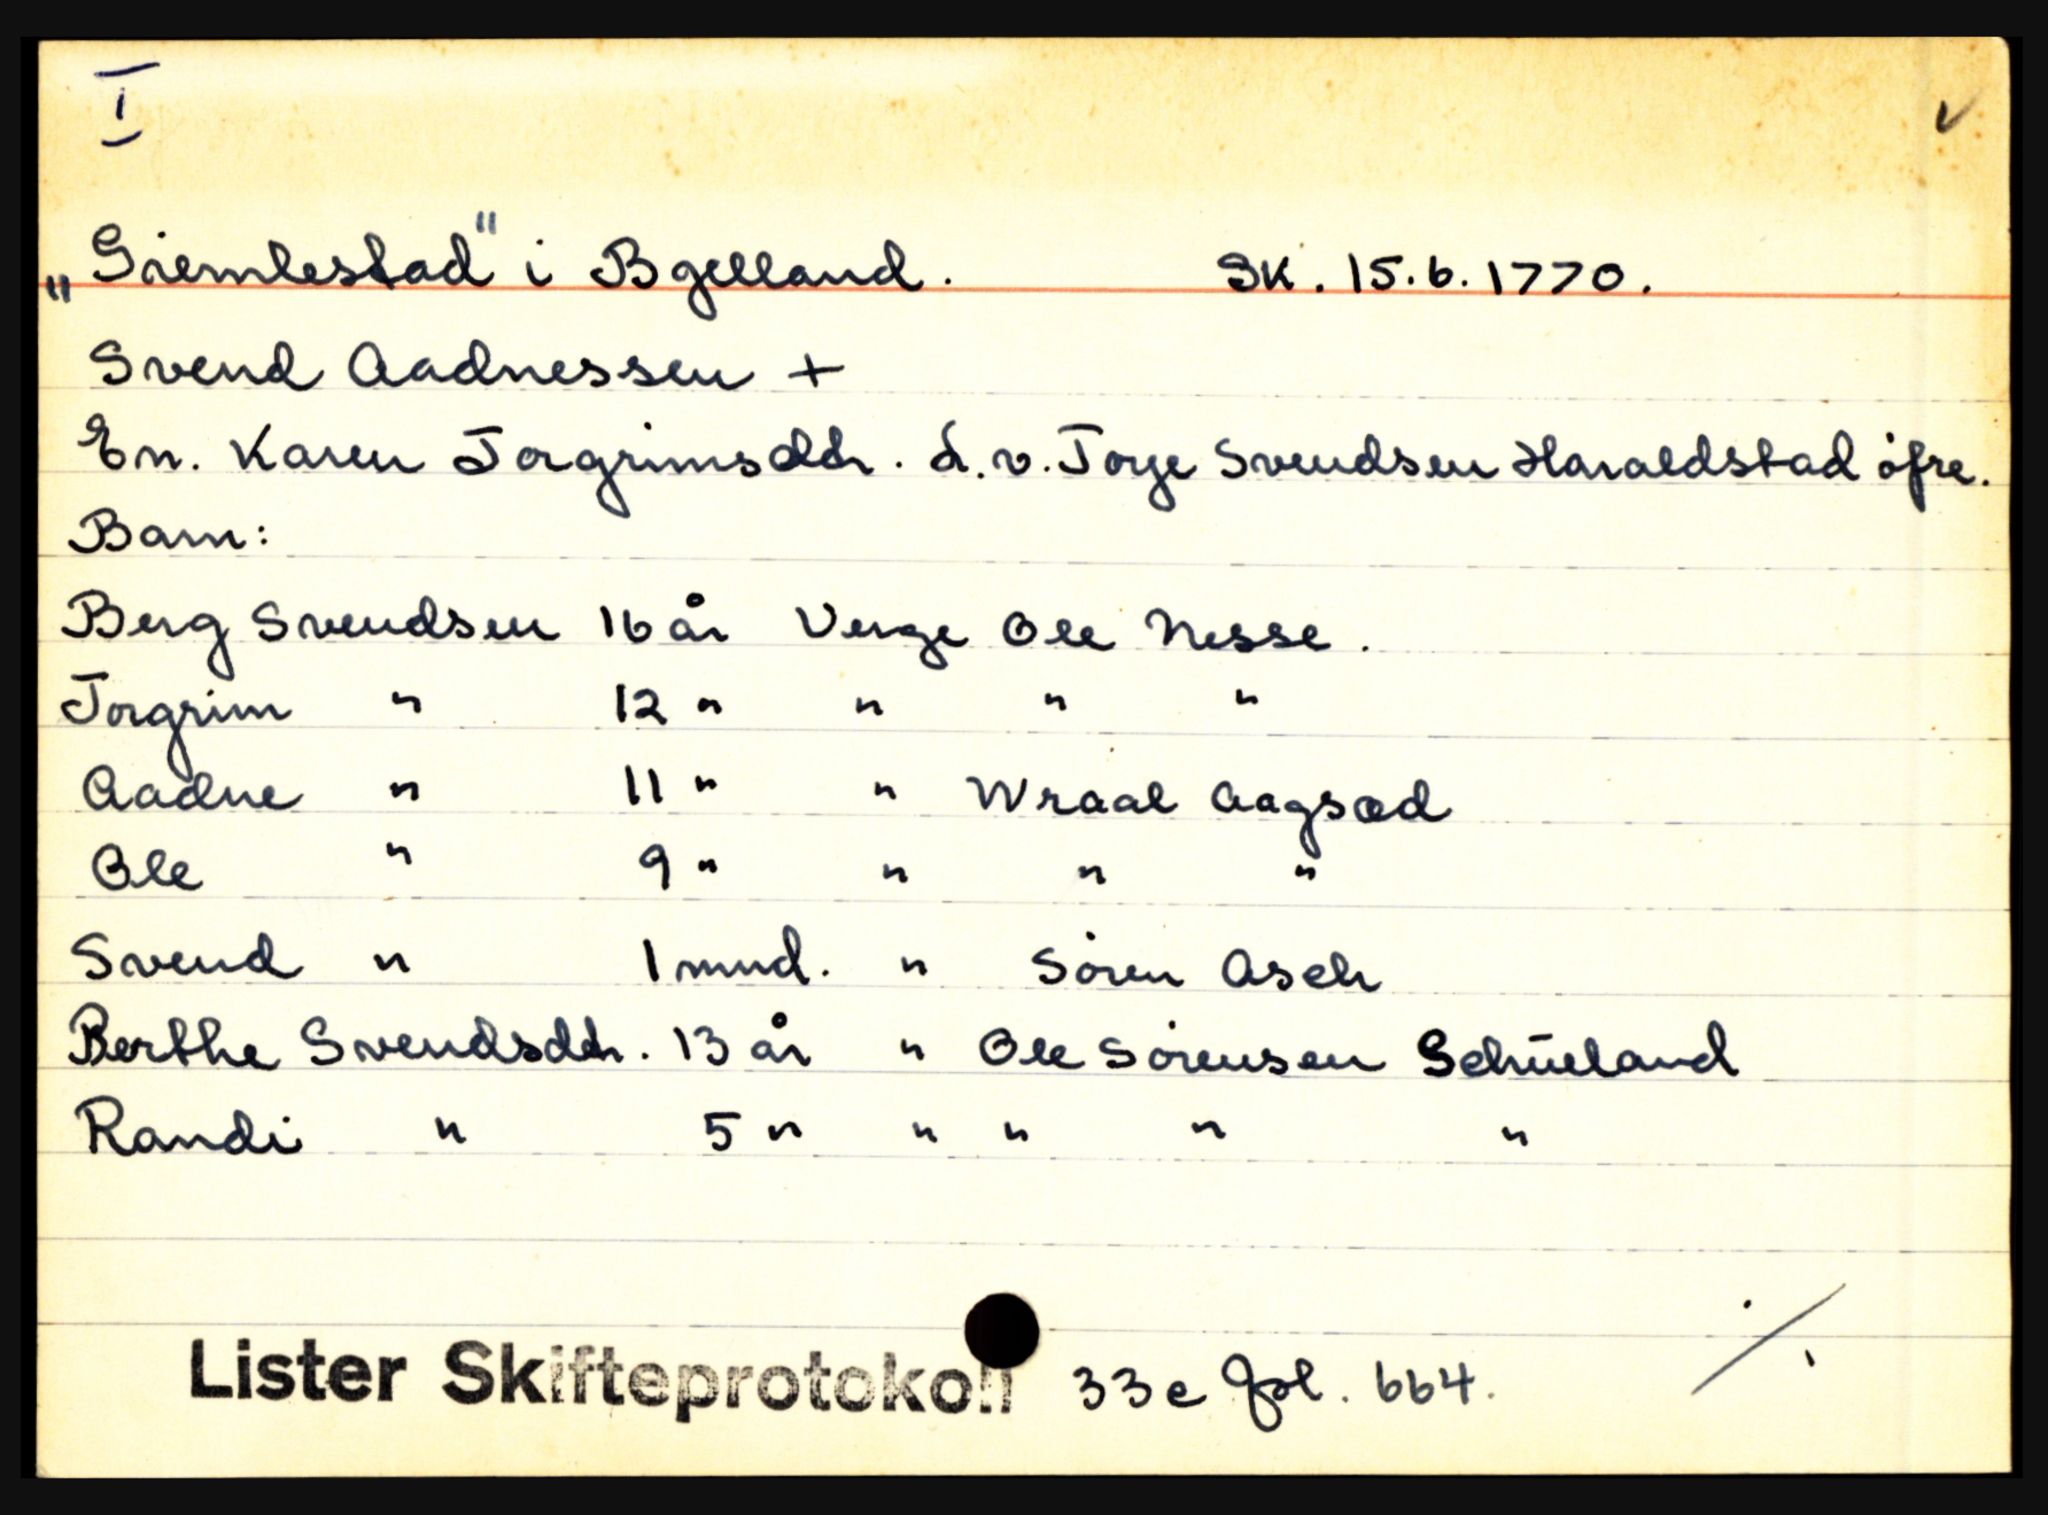 I
„Gremlestad" i Bjelland. Sk. 15.6.1770.
Svend Aadnessen +
En. Karen Torgrimsdtr. L.v. Torje Svendsen Haraldstad öfre.
Barn:
Berg Svendsen 16 år Verge Ole Nesse.
Torgrim " 12 " " " "
Aadne " 11 " " Wraal Aagsæd
Ole " 9 " " " "
Svend " 1 mnd. " Sören Asch
Berthe Svendsdtr. 13 år " Ole Sörensen Schüeland
Randi " 5 " " " " "
Lister Skifteprotokoll 33c fol. 664.